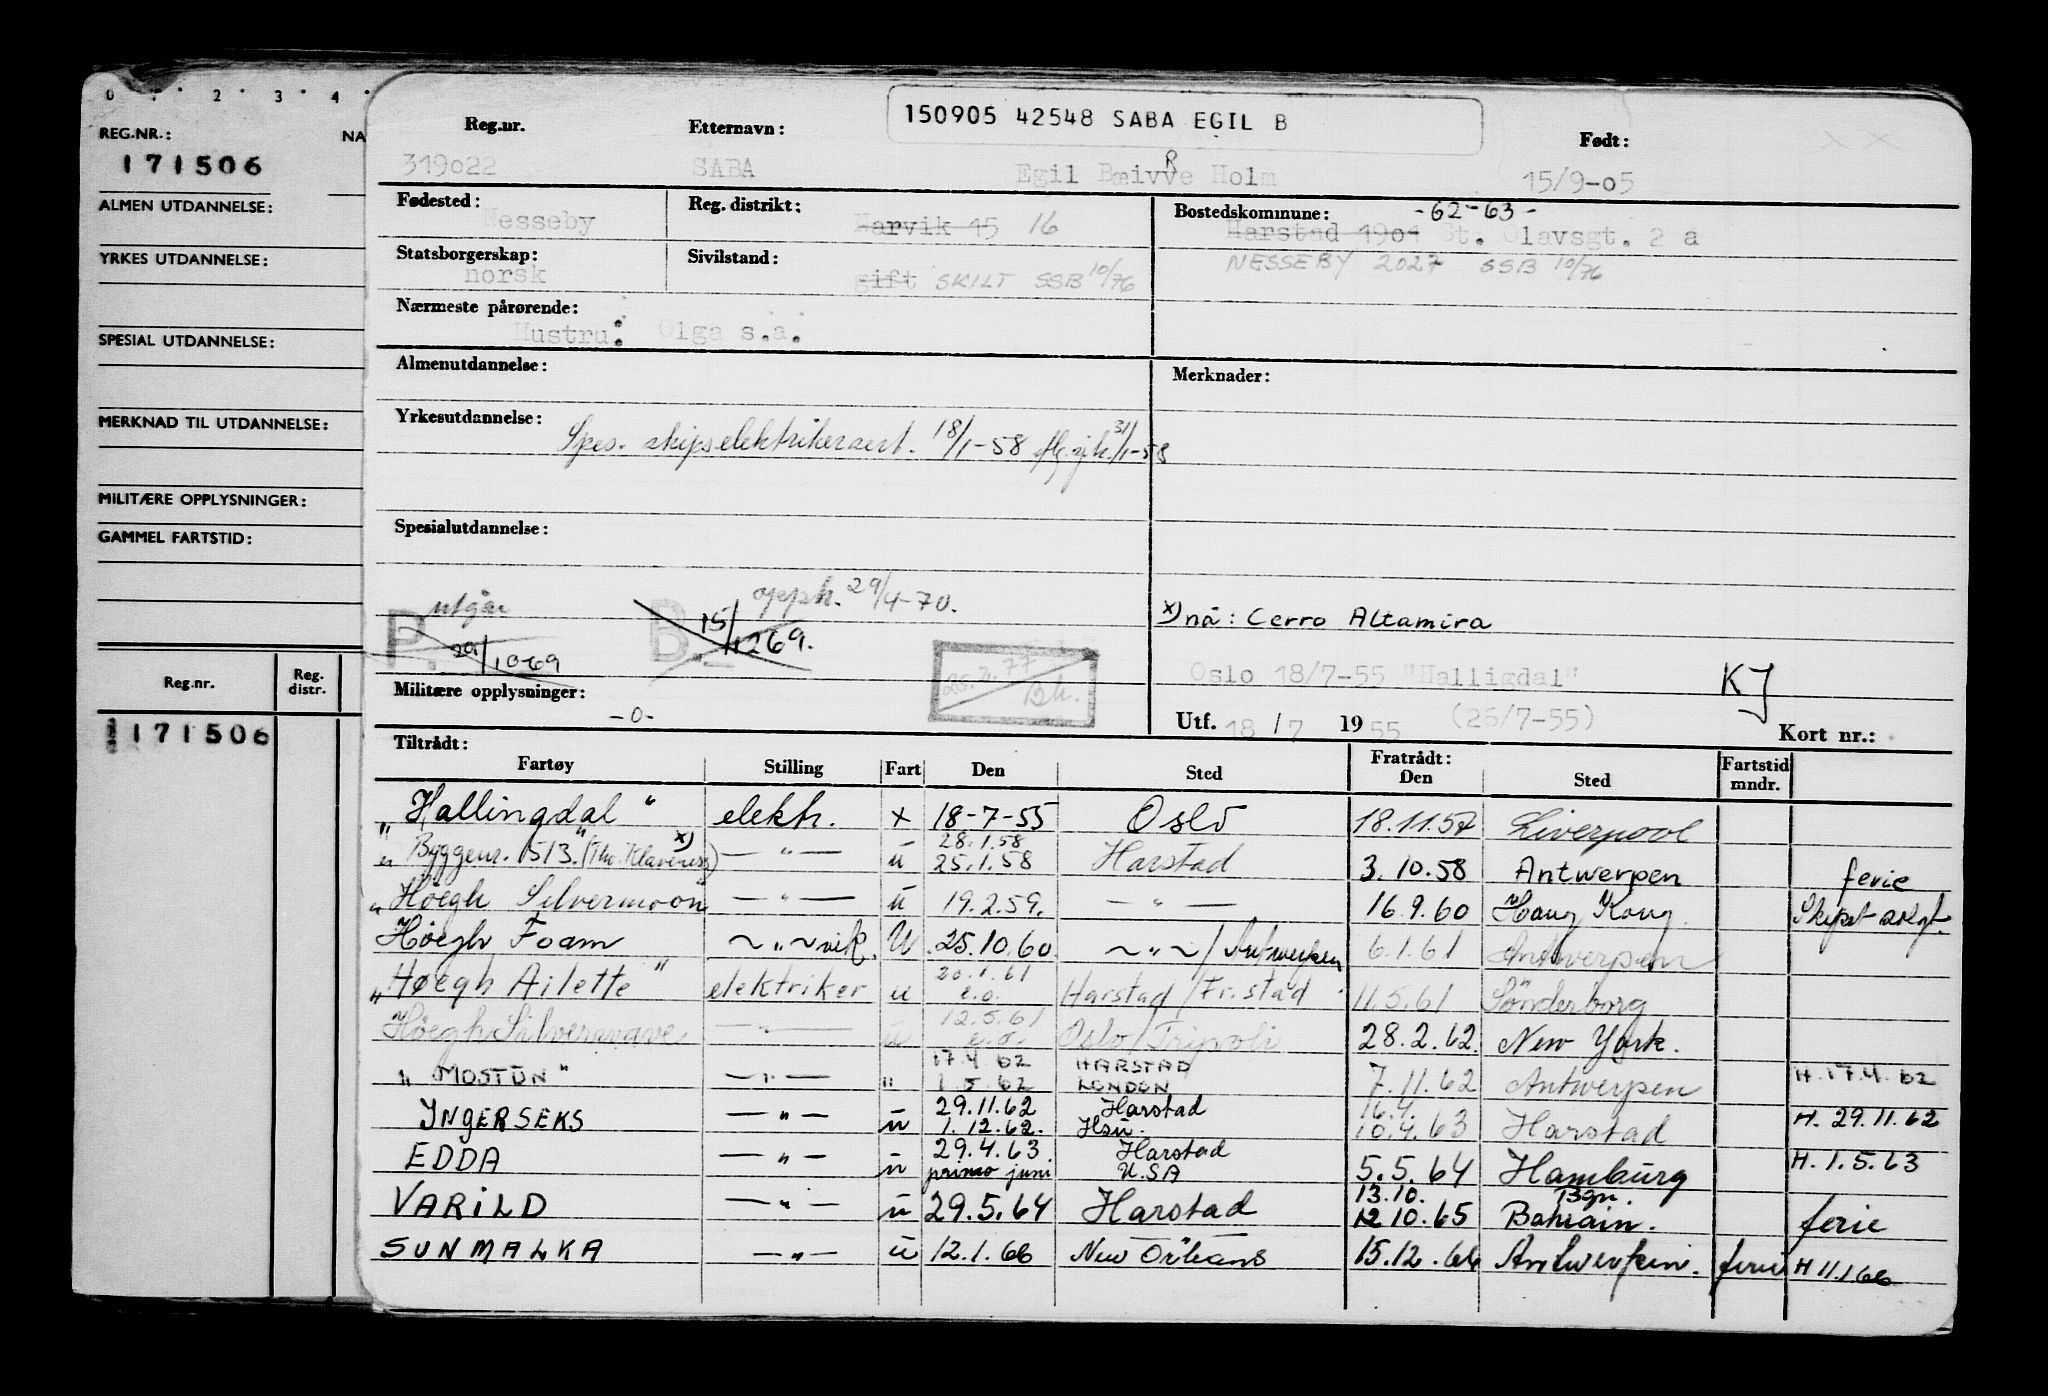 0 2 3 4
REG.NR.:
NA
171506
ALMEN UTDANNELSE:
YRKES UTDANNELSE:
SPESIAL UTDANNELSE:
MERKNAD TIL UTDANNELSE:
MILITÆRE OPPLYSNINGER:
GAMMEL FARTSTID:
Reg.nr. Reg. distr.
171506
150905 42548 SABA EGIL B
Reg.nr. Etternavn: Født:
319022 SABA Egil Bæivve Holm 15/9-05
R
Fødested: Nesseby Reg. distrikt: Narvik 15 16 Bostedskommune: -62-63-
Harstad 1901 St. Olavsgt. 2 a
Statsborgerskap: norsk Sivilstand: gift SKILT SSB 10/76 NESSEBY 2027 SSB 10/76
Nærmeste pårørende:
Hustru: Olga s.a.
Almenutdannelse: Merknader:
Yrkesutdannelse:
Spes. skipselektrikersert. 18/1-58 31/1-58
Spesialutdannelse:
utgår opph. 29/4-70.
P. 29/10-69 B. 15/1269.
x) nå: Cerro Altamira
25.2.77 Bh.
Oslo 18/7-55 "Halligdal" KJ
Militære opplysninger:
-0-
Utf. 18/7 1955 (26/7-55) Kort nr.:
Tiltrådt: Fratrådt:
Fartøy Stilling Fart Den Sted Den Sted Fartstid mndr.
"Hallingdal" elektr. x 18-7-55 Oslo 18.11.57 Liverpool
" Byggenr. 513." (Thv. Klaveness) x) — " — u 28.1.58 25.1.58 Harstad 3.10.58 Antwerpen ferie
"Höegh Silvermoon" — " — u 19.2.59. — " — 16.9.60 Hong Kong. Skipet solgt.
Höegh Foam ~ " ~ vik. U 25.10.60 ~ " ~ / Antwerpen 6.1.61 Antwerpen
"Høegh Ailette" elektriker u 20.1.61 e.o. Harstad / Fr.stad 11.5.61 Sönderborg
Höegh Silverwave — " — u 12.5.61 e.o. Oslo / Tripoli 28.2.62. New York.
"MOSTUN" — " — " 17.4 62 1.5.62 HARSTAD LONDON 7.11.62 Antwerpen H. 17.4.62
INGERSEKS — " — u 29.11.62 1.12.62. Harstad 16.4. 10.4.63 Harstad H. 29.11.62
EDDA — " — u 29.4.63. primo juni Harstad U.SA 5.5.64 Hamburg H. 1.5.63
VARILD — " — u 29.5.64 Harstad 13.10. 12 10.65 Bgn. Bahrain. ferie
SUNMALKA — " — u 12.1.66 New Orleans 15.12.66 Antwerpen. ferie H 11.1 66